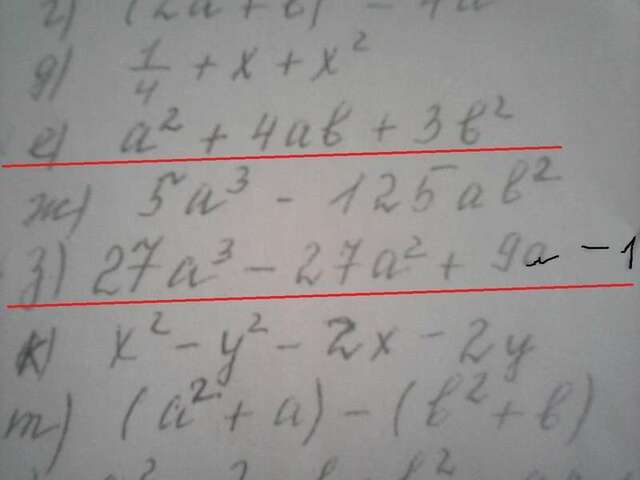 г) (2a + b)² - 4a
д) 1/4 + x + x²
е) a² + 4ab + 3b²
ж) 5a³ - 125ab²
з) 27a³ - 27a² + 9a - 1
к) x² - y² - 2x - 2y
т) (a² + a) - (b² + b)